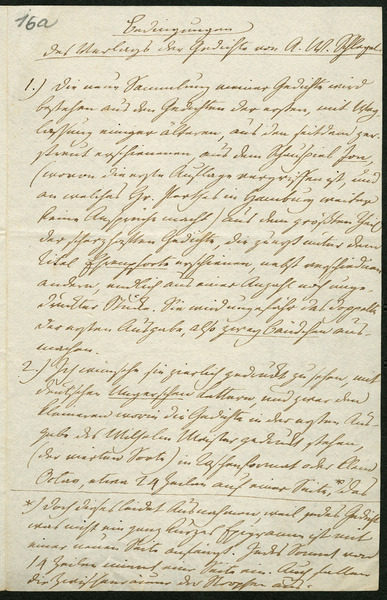 16a
Bedingungen
des Verlags der Gedichte von A. W. Schlegel.
1.) Die neue Sammlung meiner Gedichte wird
bestehen aus den Gedichten der ersten, mit Weg-
lassung einiger älteren, aus den seitdem zer-
streut erschienenen aus dem Schauspiel Jon,
(wovon die erste Auflage vergriffen ist, und
an welches Hr. Perthes in Hamburg weiter
keine Ansprüche macht) aus dem größten Theil
der scherzhaften Gedichte, die zuerst unter dem
Titel Ehrenpforte erschienen, nebst verschiedenen
andern, endlich aus einer Anzahl noch unge-
druckter Stücke. Sie wird ungefähr das doppelte
der ersten Ausgabe, also zwey Bändchen aus-
machen.
2.) Ich wünsche sie zierlich gedruckt zu sehen, mit
deutschen Ungerschen Lettern und zwar den
kleineren worin die Gedichte in der ersten Aus-
gabe des Wilhelm Meister gedruckt stehen,
(der vierten Sorte) in Taschenformat oder klein
Octav, etwa 24 Zeilen auf einer Seite,* das
*) doch dieses leidet Ausnahmen weil jedes Gedicht
was nicht ein ganz kurzes Epigramm ist mit
einer neuen Seite anfängt. Jedes Sonnet von
14 Zeilen nimmt eine Seite ein. Auch fallen
die Zwischenräume der Strophen aus.